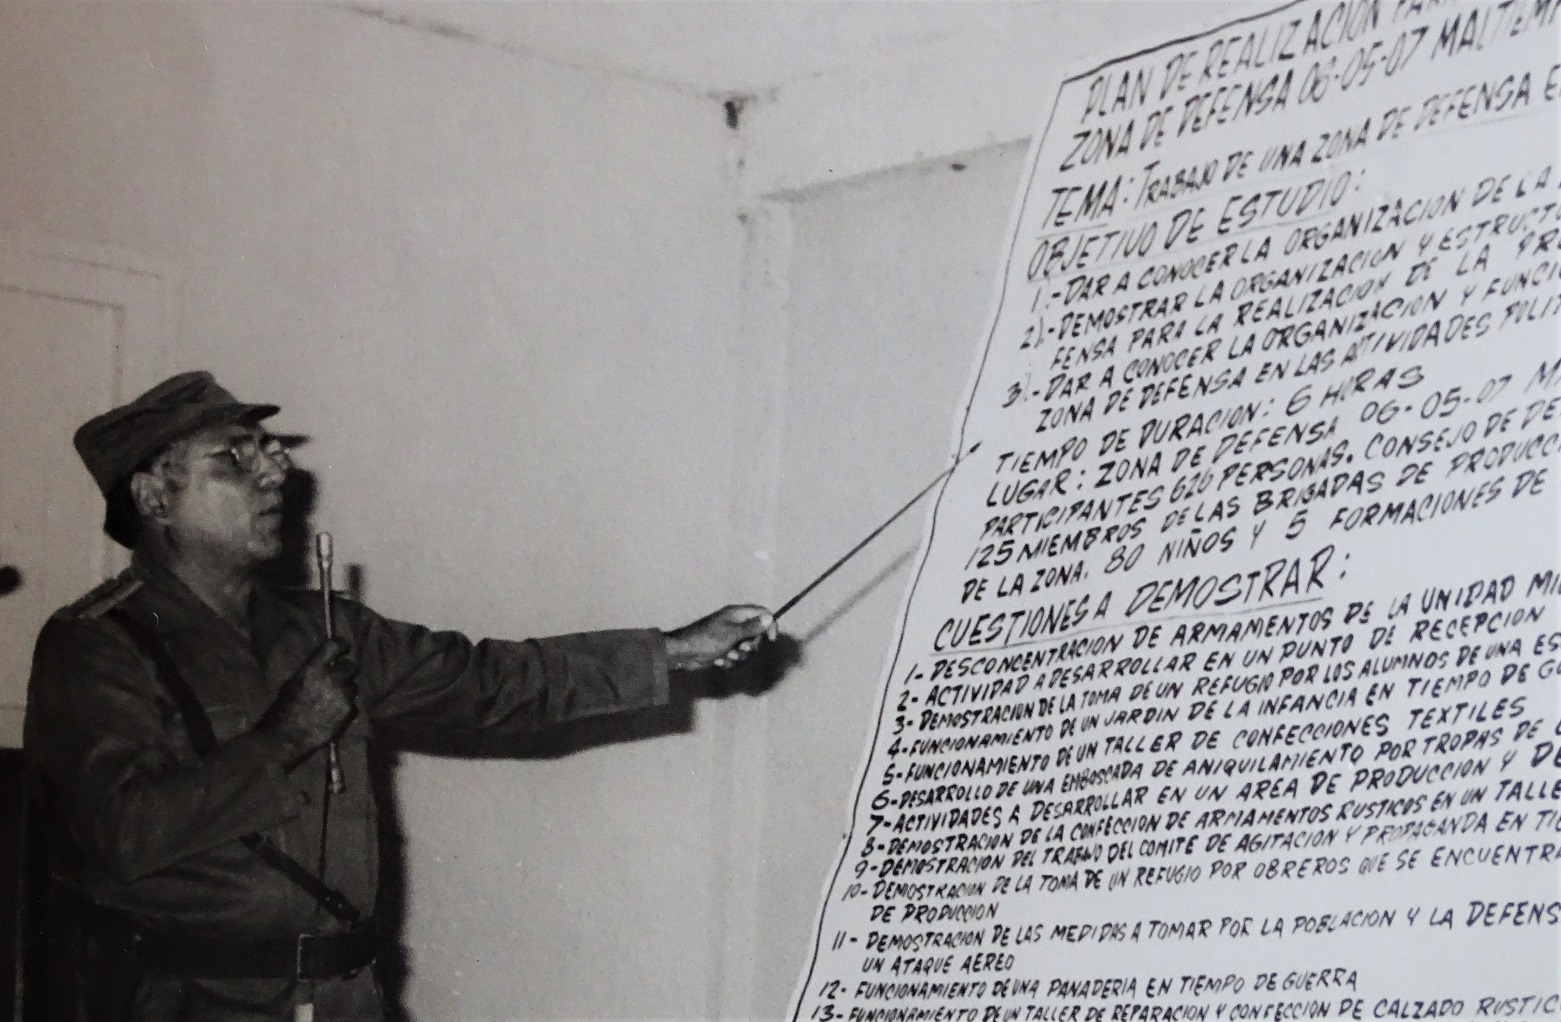 PLAN DE REALIZACION PARA
ZONA DE DEFENSA 06-05-07 MALTIEMP
TEMA: TRABAJO DE UNA ZONA DE DEFENSA E
OBJETIVO DE ESTUDIO:
1.- DAR A CONOCER LA ORGANIZACION DE LA
2).- DEMOSTRAR LA ORGANIZACION Y ESTRUCT
FENSA PARA LA REALIZACION DE LA PR
3).- DAR A CONOCER LA ORGANIZACION Y FUNCI
ZONA DE DEFENSA EN LAS ACTIVIDADES POLIT
TIEMPO DE DURACION: 6 HORAS
LUGAR: ZONA DE DEFENSA 06-05-07 M
PARTICIPANTES 626 PERSONAS. CONSEJO DE DE
125 MIEMBROS DE LAS BRIGADAS DE PRODUCC
DE LA ZONA. 80 NIÑOS Y 5 FORMACIONES DE
CUESTIONES A DEMOSTRAR:
1- DESCONCENTRACION DE ARMAMENTOS DE LA UNIDAD MI
2- ACTIVIDAD A DESARROLLAR EN UN PUNTO DE RECEPCION
3- DEMOSTRACION DE LA TOMA DE UN REFUGIO POR LOS ALUMNOS DE UNA ES
4- FUNCIONAMIENTO DE UN JARDIN DE LA INFANCIA EN TIEMPO DE GU
5- FUNCIONAMIENTO DE UN TALLER DE CONFECCIONES TEXTILES
6- DESARROLLO DE UNA EMBOSCADA DE ANIQUILAMIENTO POR TROPAS DE
7- ACTIVIDADES A DESARROLLAR EN UN AREA DE PRODUCCION Y DE
8- DEMOSTRACION DE LA CONFECCION DE ARMAMENTOS RUSTICOS EN UN TALLE
9- DEMOSTRACION DEL TRABAJO DEL COMITE DE AGITACION Y PROPAGANDA EN TI
10- DEMOSTRACION DE LA TOMA DE UN REFUGIO POR OBREROS QUE SE ENCUENTRA
DE PRODUCCION
11- DEMOSTRACION DE LAS MEDIDAS A TOMAR POR LA POBLACION Y LA DEFENS
UN ATAQUE AEREO
12- FUNCIONAMIENTO DE UNA PANADERIA EN TIEMPO DE GUERRA
13- FUNCIONAMIENTO DE UN TALLER DE REPARACION Y CONFECCION DE CALZADO RUSTIC